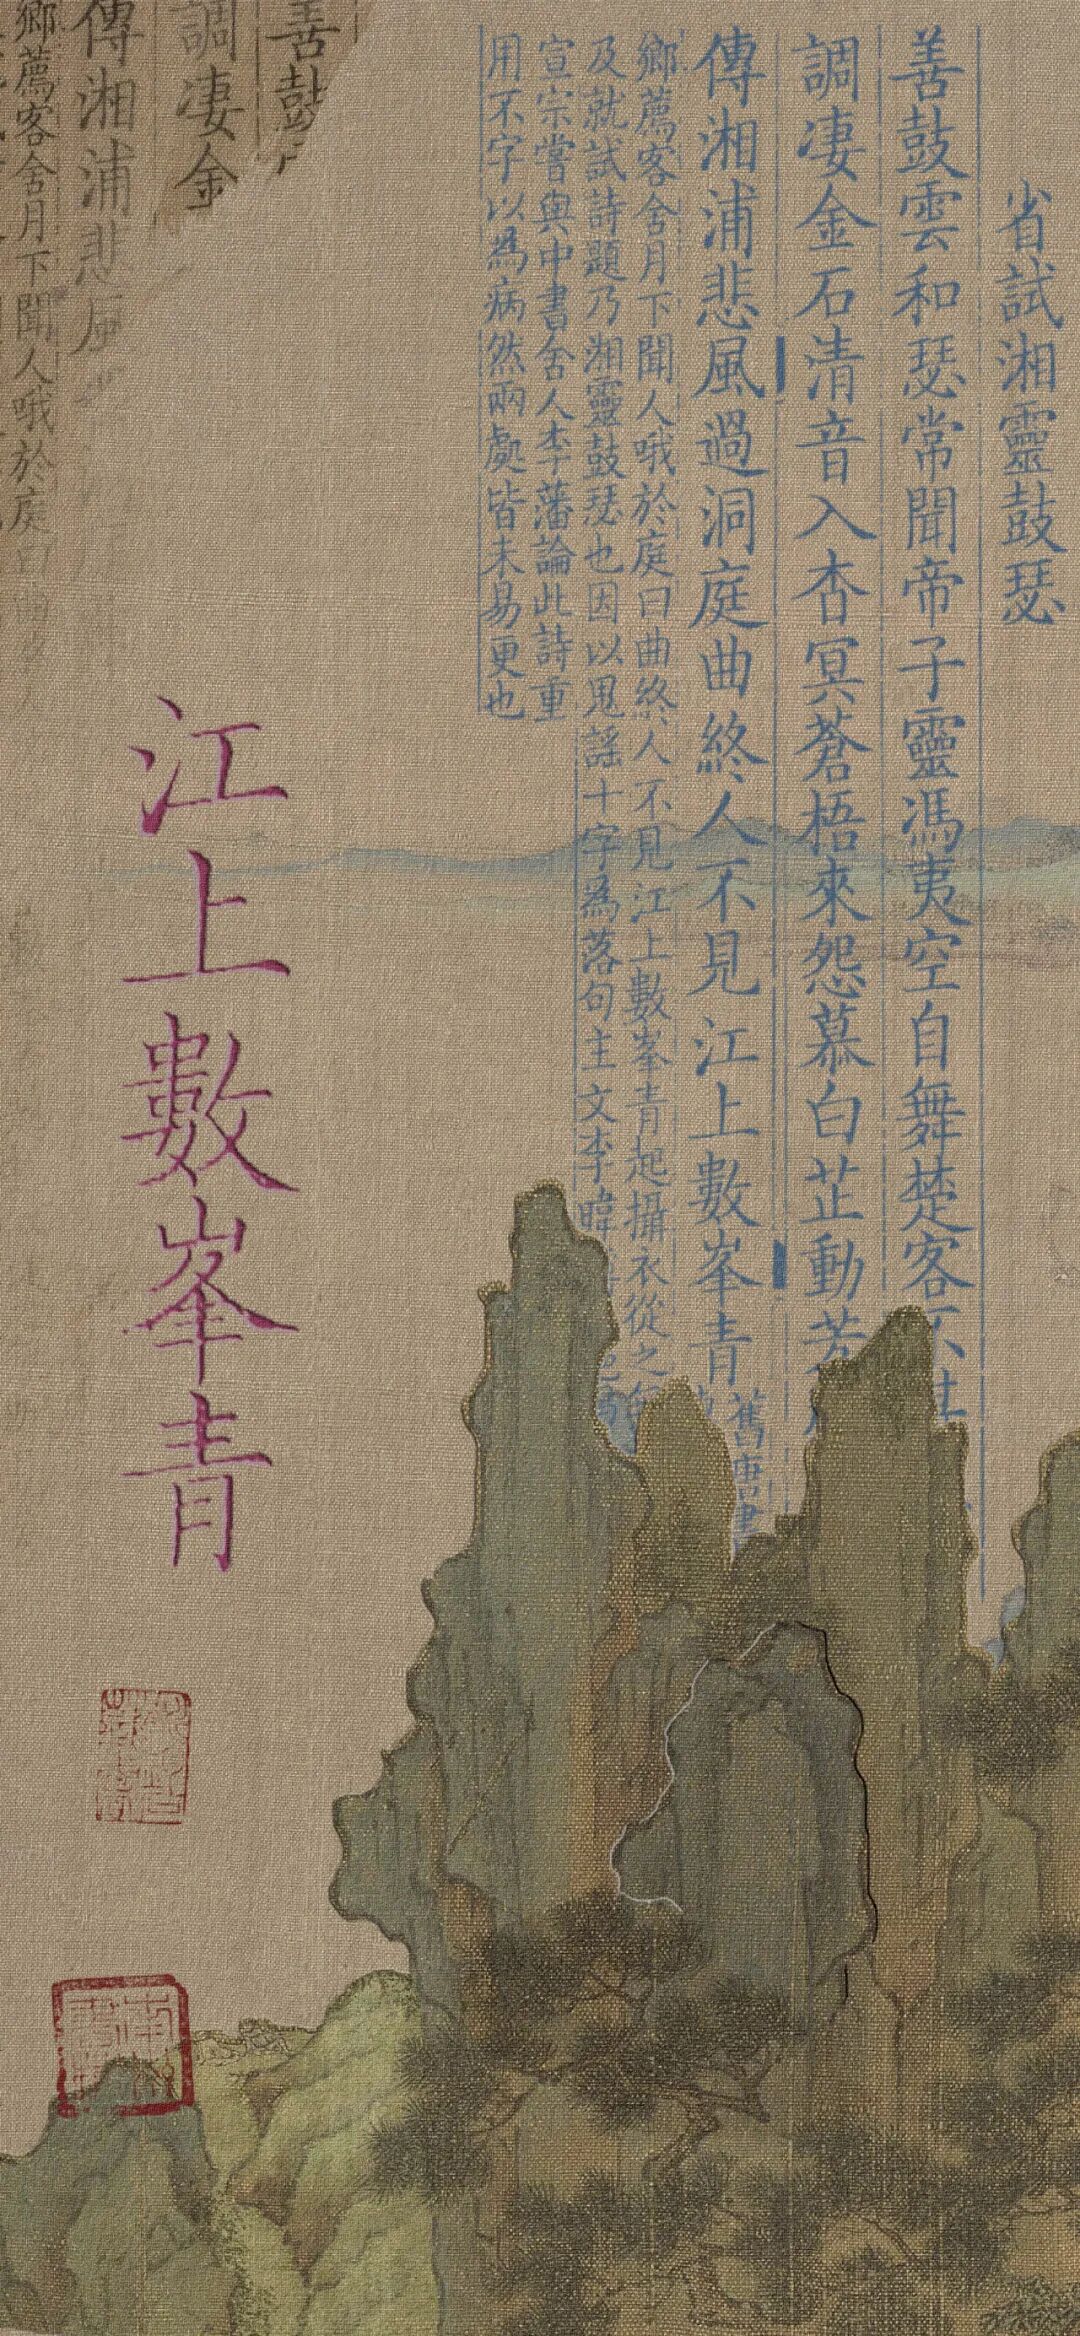 省試湘靈鼓瑟
善鼓雲和瑟常聞帝子靈馮夷空自舞楚客不
調凄金石清音入杳冥蒼梧來怨慕白芷動芳
傳湘浦悲風過洞庭曲終人不見江上數峯青舊唐書
鄉薦客舍月下聞人哦於庭曰曲終人不見江上數峯青起攝衣從之
及就試詩題乃湘靈鼓瑟也因以鬼謡十字爲落句主文李暐
宣宗嘗與中書舍人李藩論此詩重
用不字以爲病然兩處皆未易更也
善鼓
調凄金
傳湘浦悲風
鄉薦客舍月下聞人哦於庭曰曲終人
江上數峯青